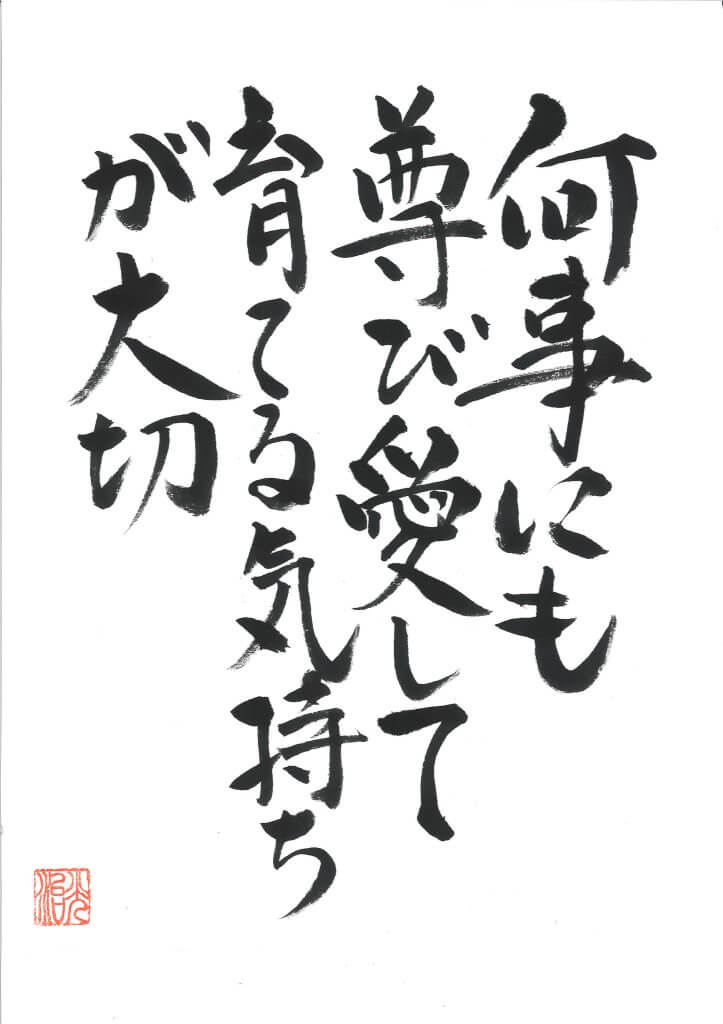 何事にも
尊び愛して
育てる気持ち
が大切